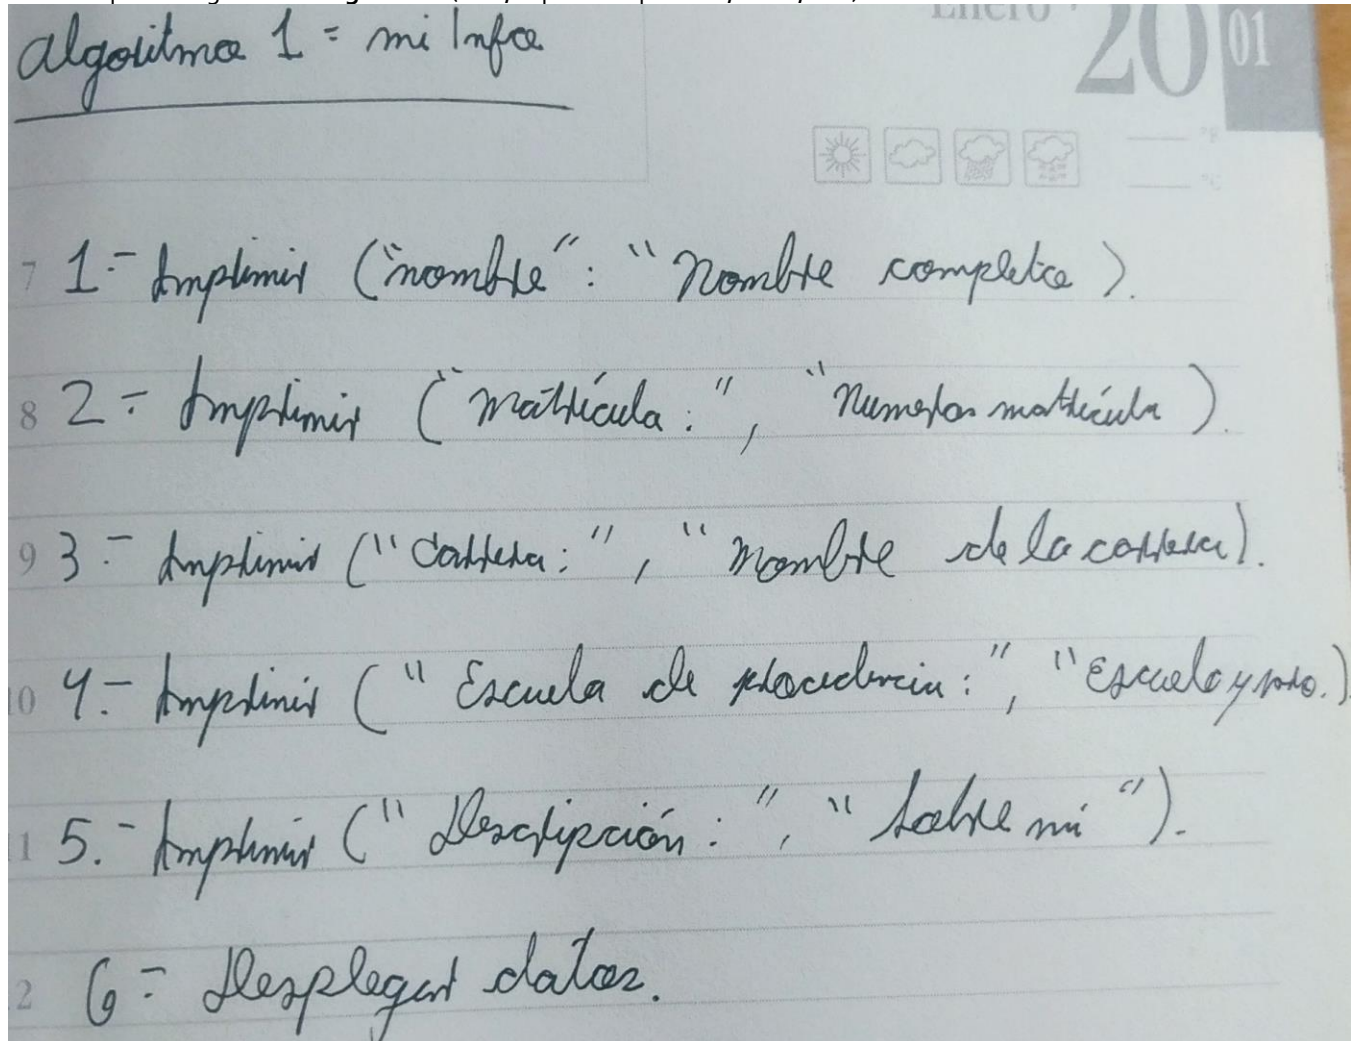 Enero
20 01
algoritmo 1 = mi Info
7 1.- Imprimir ("nombre": "Nombre completo).
8 2.- Imprimir ("matrícula:", "Numeros matrícula).
9 3.- Imprimir ("Carrera:", "Nombre de la carrera).
10 4.- Imprimir ("Escuela de procedencia:", "Escuela y pro.)
11 5.- Imprimir ("Descripción:", "Sobre mi").
2 6.- Desplegar datos.